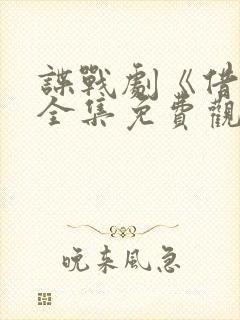 諜戰劇《借
全集免費觀
晚来風急